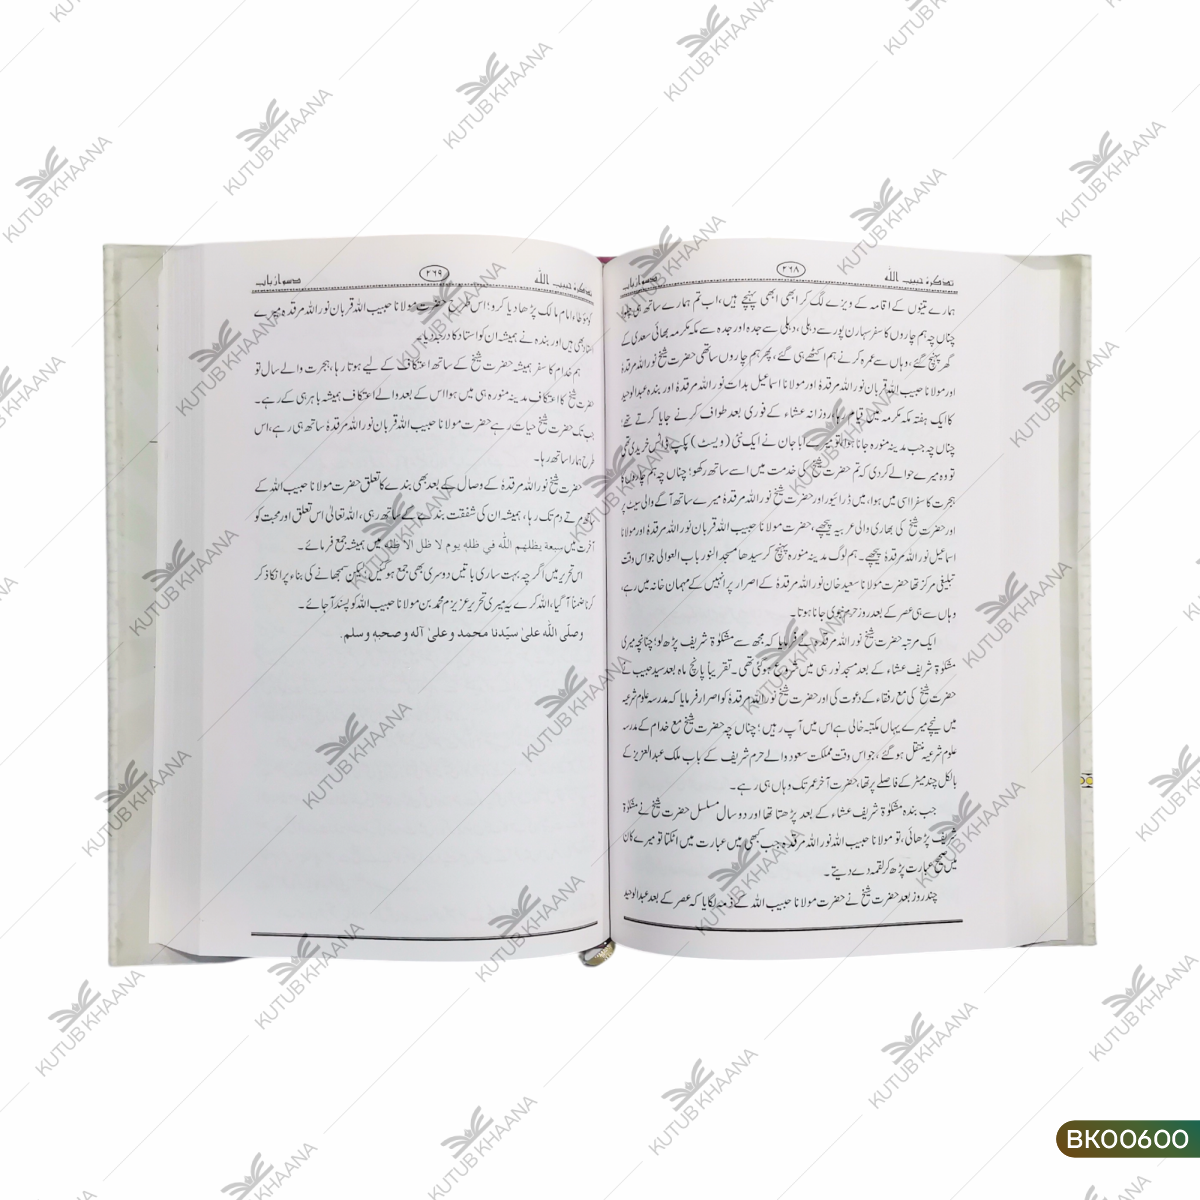 تذکرۂ حبیب اللہ ۲۶۸ دسواں باب
ہمارے تینوں کے اقامہ کے ویزے لگ کر ابھی ابھی پہنچے ہیں، اب تم ہمارے ساتھ ہی چلو!
چناں چہ ہم چاروں کا سفر سہارن پور سے دہلی، دہلی سے جدہ اور جدہ سے مکہ مکرمہ بھائی سعدی کے
گھر پہنچ گئے، وہاں سے عمرہ کرنے ہم اکٹھے ہی گئے، پھر ہم چاروں ساتھی حضرت شیخ نور اللہ مرقدہٗ
اور مولانا حبیب اللہ قربان نور اللہ مرقدہٗ اور مولانا اسماعیل بدات نور اللہ مرقدہٗ اور بندہ عبدالوحید
کا ایک ہفتہ مکہ مکرمہ میں قیام رہا، روزانہ عشاء کے فوری بعد طواف کرنے جایا کرتے تھے؛
چناں چہ جب مدینہ منورہ جانا ہوا تو میرے ابا جان نے ایک نئی (ویسٹ) پک اپ خریدی تھی
تو وہ میرے حوالے کر دی کہ تم حضرت شیخ کی خدمت میں اسے ساتھ رکھو؛ چناں چہ ہم چاروں کا
ہجرت کا سفر اسی میں ہوا، میں ڈرائیور اور حضرت شیخ نور اللہ مرقدہٗ میرے ساتھ آگے والی سیٹ پر
اور حضرت شیخ کی بھاری والی عربیہ پیچھے، حضرت مولانا حبیب اللہ قربان نور اللہ مرقدہٗ اور مولانا
اسماعیل نور اللہ مرقدہٗ پیچھے۔ ہم لوگ مدینہ منورہ پہنچ کر سیدھا مسجد النور باب العوالی جو اس وقت
تبلیغی مرکز تھا حضرت مولانا سعید خان نور اللہ مرقدہٗ کے اصرار پر انہیں کے مہمان خانہ میں رہے،
وہاں سے ہی عصر کے بعد روز حرم نبوی جانا ہوتا۔
ایک مرتبہ حضرت شیخ نور اللہ مرقدہٗ نے فرمایا کہ مجھ سے مشکوٰۃ شریف پڑھ لو؛ چنانچہ میری
مشکوٰۃ شریف عشاء کے بعد مسجد نور ہی میں شروع ہو گئی تھی۔ تقریباً پانچ ماہ بعد سید حبیب نے
حضرت شیخ کی مع رفقاء کے دعوت کی اور حضرت شیخ نور اللہ مرقدہٗ کو اصرار فرمایا کہ مدرسہ علوم شرعیہ
میں نیچے میرے یہاں مکتبہ خالی ہے اس میں آپ رہیں؛ چناں چہ حضرت شیخ مع خدام کے مدرسہ
علوم شرعیہ منتقل ہو گئے، جو اس وقت مملکت سعود والے حرم شریف کے باب ملک عبدالعزیز کے
بالکل چند میٹر کے فاصلے پر تھا، حضرت آخر عمر تک وہاں ہی رہے۔
جب بندہ مشکوٰۃ شریف عشاء کے بعد پڑھتا تھا اور دو سال مسلسل حضرت شیخ نے مشکوٰۃ
شریف پڑھائی، تو مولانا حبیب اللہ نور اللہ مرقدہٗ جب کبھی میں عبارت میں اٹکتا تو میرے کان
میں صحیح عبارت پڑھ کر لقمہ دے دیتے۔
چند روز بعد حضرت شیخ نے حضرت مولانا حبیب اللہ کے ذمہ لگایا کہ عصر کے بعد عبدالوحید
تذکرۂ حبیب اللہ ۲۶۹ دسواں باب
کو مؤطا امام مالک پڑھا دیا کرو؛ اس طرح حضرت مولانا حبیب اللہ قربان نور اللہ مرقدہٗ میرے
استاد بھی ہیں اور بندہ نے ہمیشہ ان کو استاد کا درجہ دیا۔
ہم خدام کا سفر ہمیشہ حضرت شیخ کے ساتھ اعتکاف کے لیے ہوتا رہا، ہجرت والے سال تو
حضرت شیخ کا اعتکاف مدینہ منورہ ہی میں ہوا اس کے بعد والے اعتکاف ہمیشہ باہر ہی کے رہے۔
جب تک حضرت شیخ حیات رہے حضرت مولانا حبیب اللہ قربان نور اللہ مرقدہٗ ساتھ ہی رہے، اس
طرح ہمارا ساتھ رہا۔
حضرت شیخ نور اللہ مرقدہٗ کے وصال کے بعد بھی بندے کا تعلق حضرت مولانا حبیب اللہ کے
مرتے دم تک رہا، ہمیشہ ان کی شفقت بندے کے ساتھ رہی، اللہ تعالیٰ اس تعلق اور محبت کو
آخرت میں سبعة يظلهم الله في ظله يوم لا ظل الا ظله میں ہمیشہ جمع فرمائے۔
اس تحریر میں اگر چہ بہت ساری باتیں دوسری بھی جمع ہو گئیں؛ لیکن سمجھانے کی بناء پر ان کا ذکر
کرنا ضمناً آ گیا، اللہ کرے یہ میری تحریر عزیزم محمد بن مولانا حبیب اللہ کو پسند آ جائے۔
وصلّى الله علىٰ سيّدنا محمد وعلىٰ آله وصحبه وسلم.
KUTUB KHAANA
BK00600